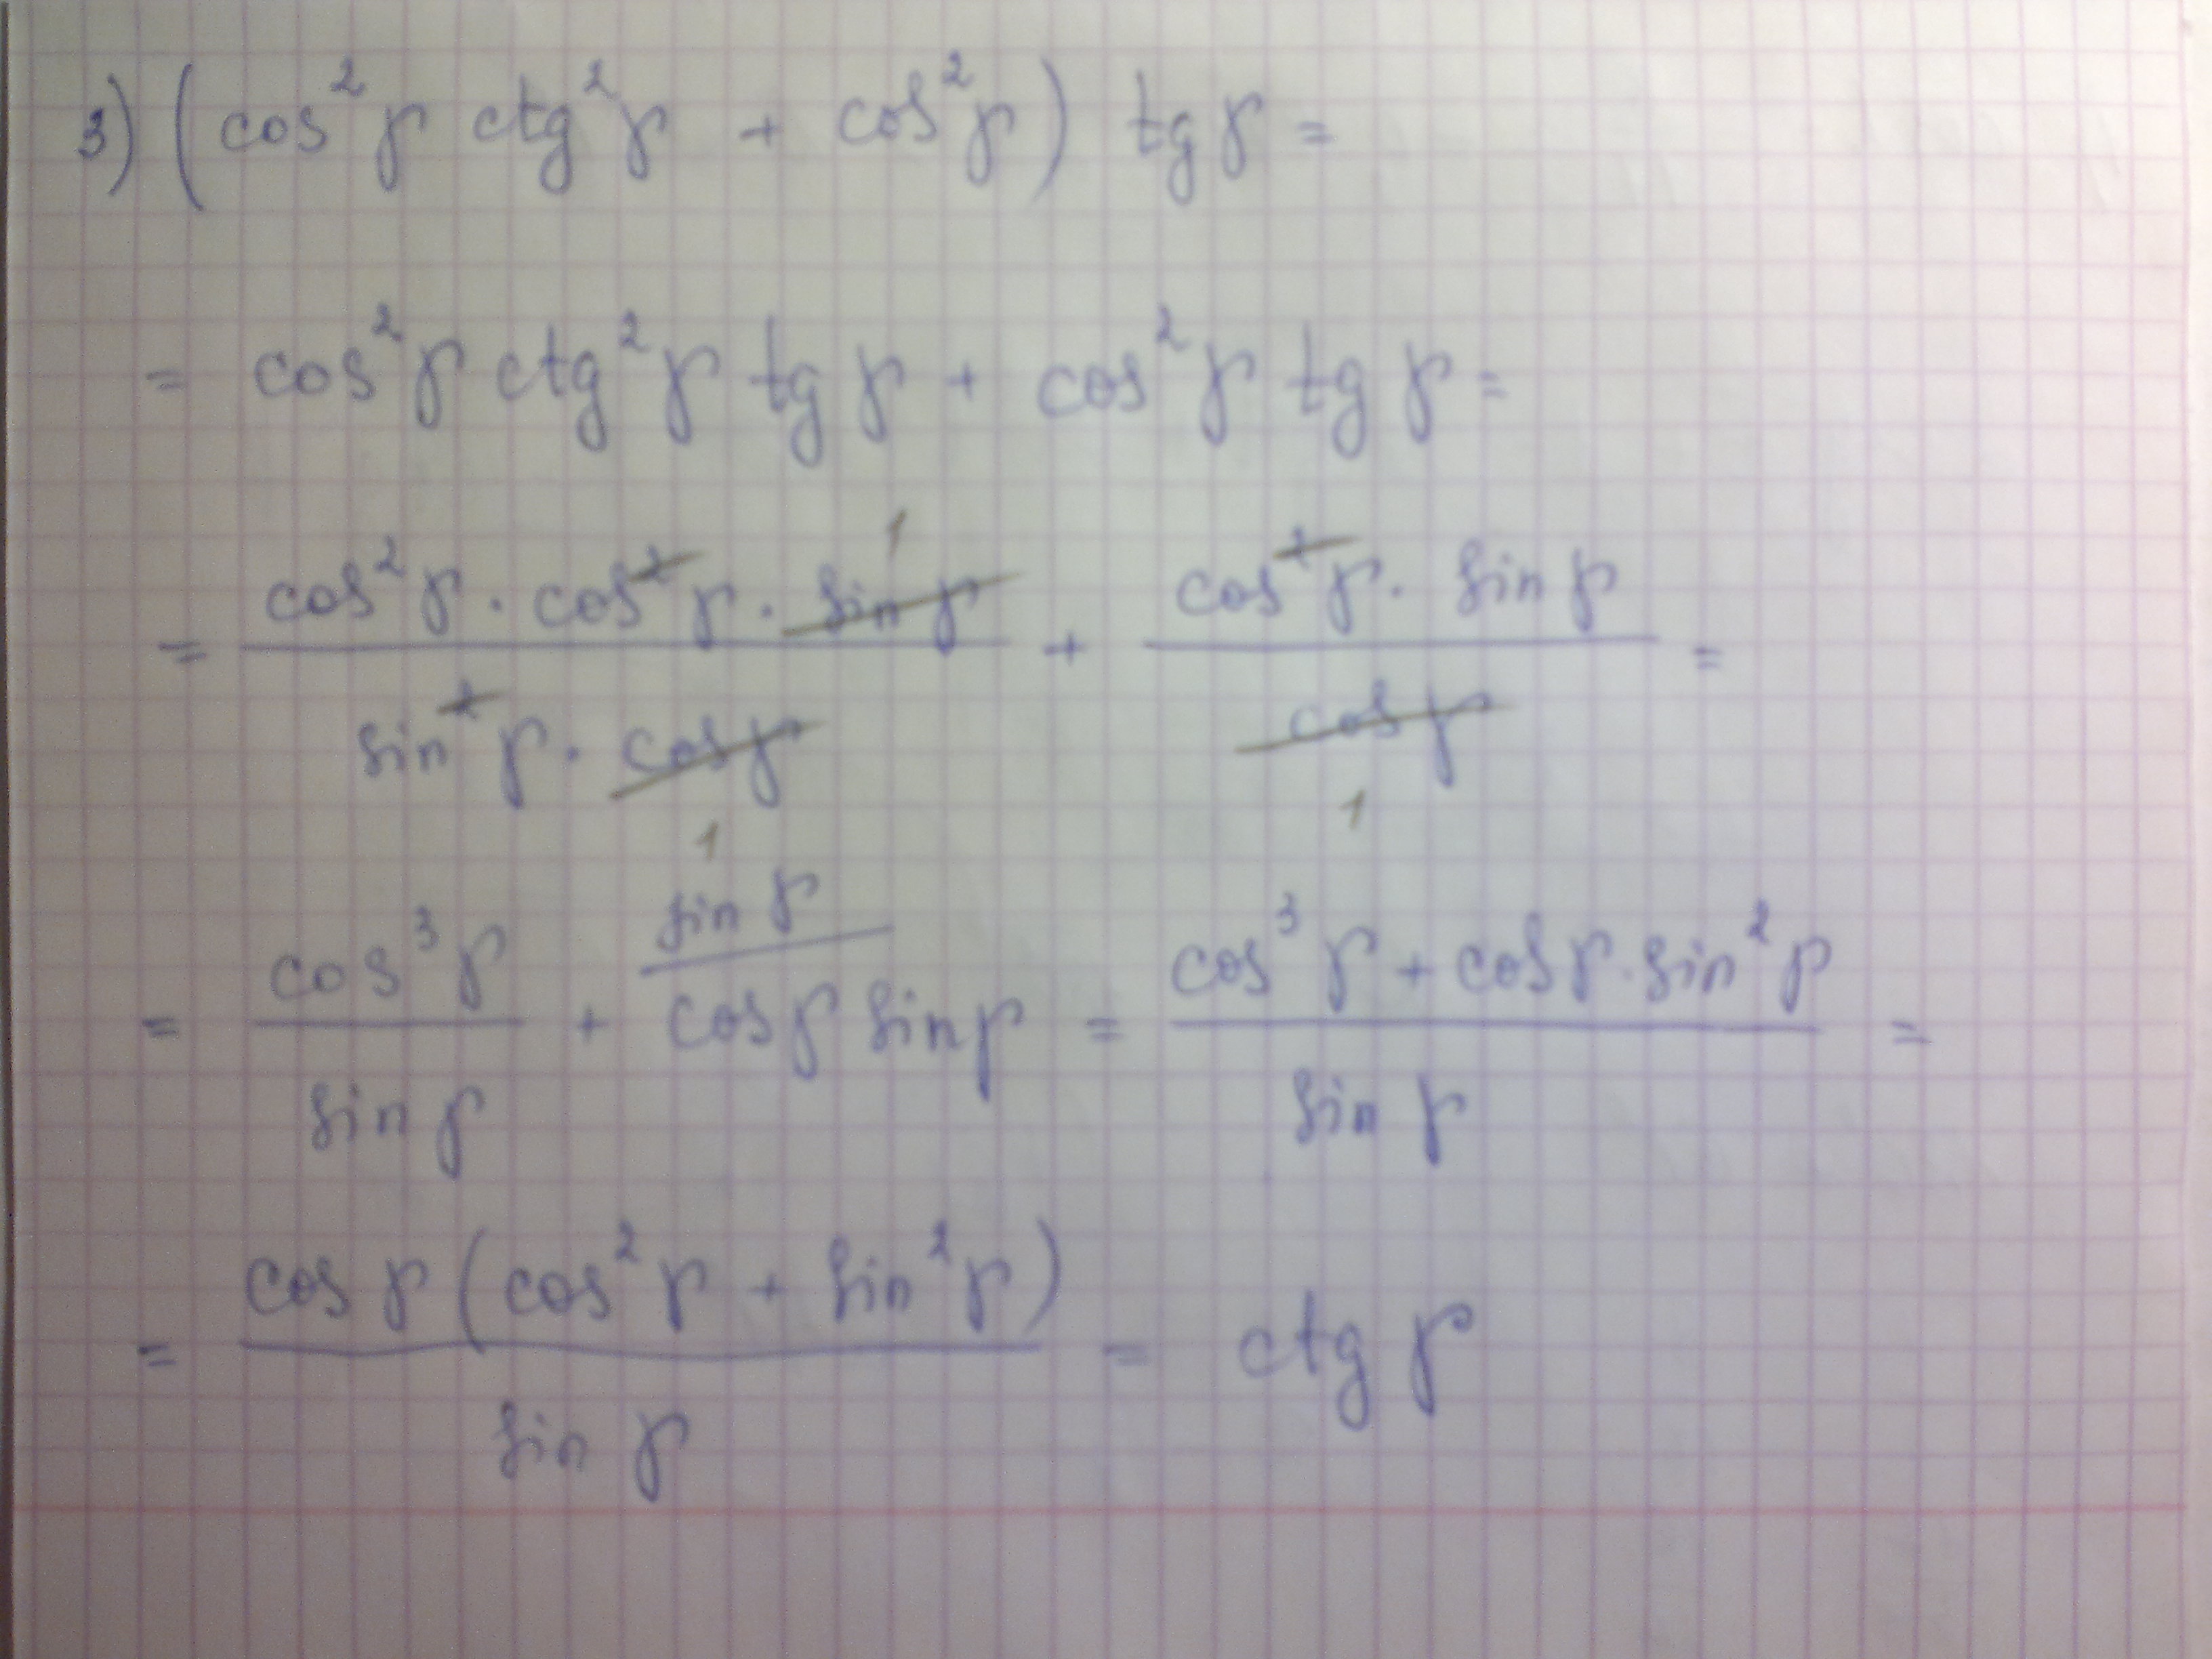 3) (cos²γ ctg²γ + cos²γ) tg γ =
= cos²γ ctg²γ tg γ + cos²γ tg γ =
1
= cos²γ · cos²γ · sin γ / sin²γ · cos γ + cos²γ · sin γ / cos γ =
1 1
= cos³γ / sin γ + sin γ / cos γ sin γ = cos³γ + cos γ · sin²γ / sin γ =
= cos γ (cos²γ + sin²γ) / sin γ = ctg γ